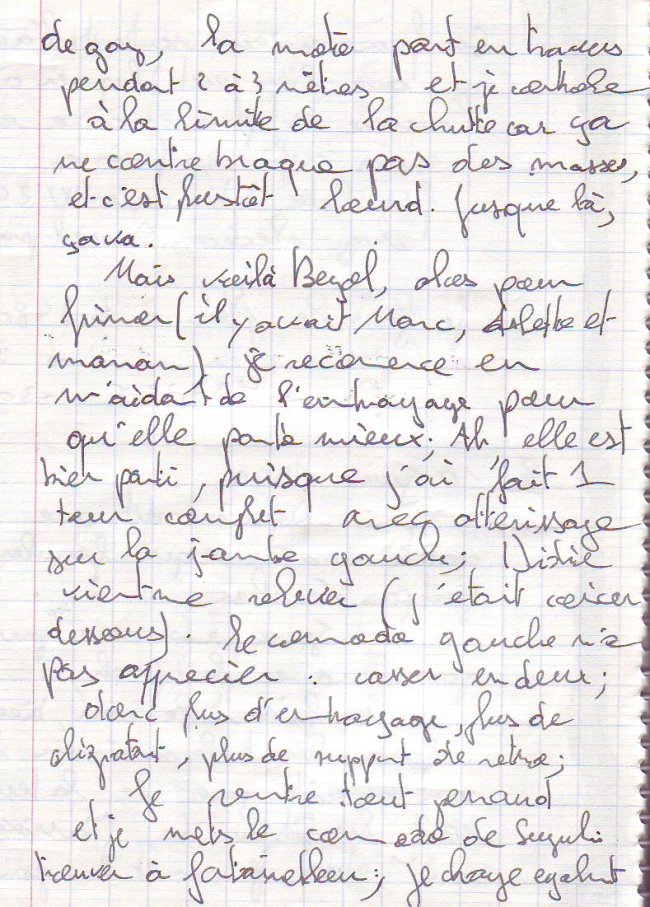 de gaz, la moto part en travers
pendant 2 à 3 mètres et je contrôle
à la limite de la chutte car ça
ne contre braque pas des masses,
et c'est plustôt lourd. Jusque là,
ça va.
Mais voilà Beyel, alors pour
frimer (il y avait Marc, Arlette et
manon) je recomence en
m'aidant de l'embrayage pour
qu'elle parte mieux; Ah, elle est
bien parti, puisque j'ai fait 1
tour complet avec atterissage
sur la jambe gauche; Didié
vient me relever (j'étais coincer
dessous). Le comodo gauche n'a
pas apprecier : casser en deux;
donc plus d'embrayage, plus de
clignotant, plus de support de retro;
Je rentre tout penaud
et je mets le comodo de Suzuki
trouver à fatainebleau; je change egalement